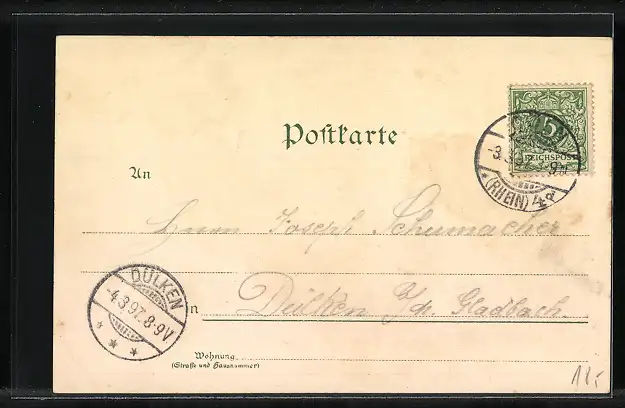 Postkarte
5
REICHSPOST
-3.3.97.
(RHEIN) 4d
An
Herrn Joseph Schumacher
DÜLKEN
-4.3.97.8-9V
n Dülken b/M. Gladbach.
Wohnung
(Straße und Hausnummer)
11,-